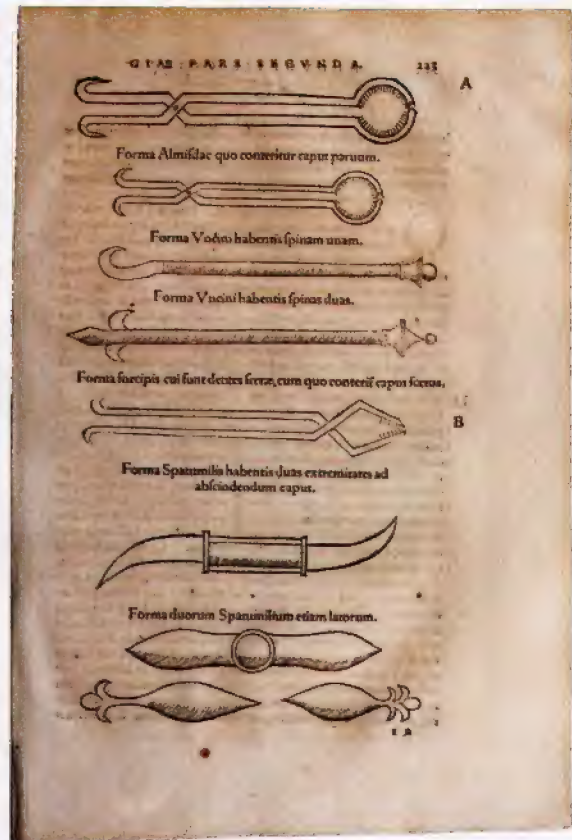 GIAE PARS SEGVNDA. 225
A
Forma Almisdac quo conteritur caput paruum.
Forma Vncini habentis spinam unam.
Forma Vncini habentis spinas duas.
Forma forcipis cui sunt dentes serræ, cum quo conterit caput fœtus.
B
Forma Spatumilis habentis duas extremitates ad
abscindendum caput.
Forma duorum Spatumilium etiam latorum.